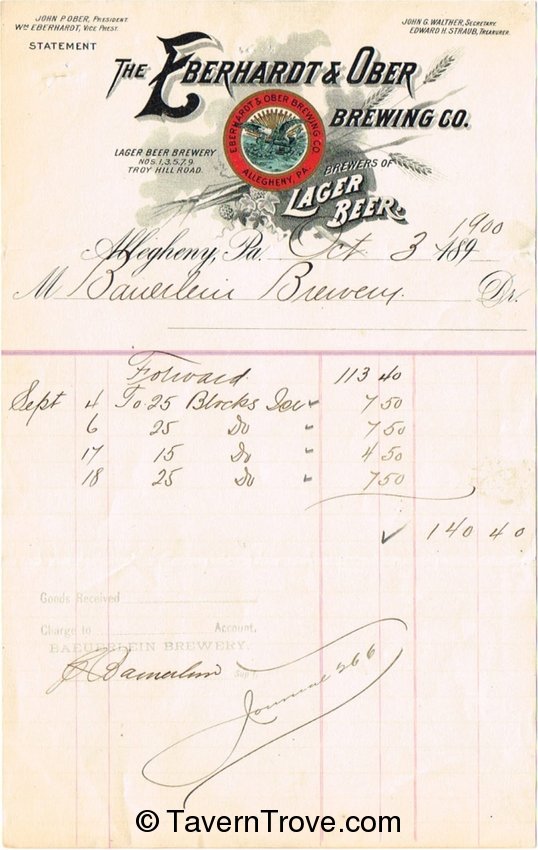 JOHN P. OBER, PRESIDENT.
WM EBERHARDT, VICE PREST.
JOHN G. WALTHER, SECRETARY.
EDWARD H. STRAUB, TREASURER.
STATEMENT
THE EBERHARDT & OBER
BREWING CO.
EBERHARDT & OBER BREWING CO.
ALLEGHENY, PA.
LAGER BEER BREWERY
NOS. 1, 3, 5, 7, 9.
TROY HILL ROAD.
BREWERS OF
LAGER
BEER.
1900
Allegheny, Pa. Oct 3 189
M Bauerlein Brewery. Dr.
Forward 113 40
Sept 4 To 25 Blocks Ice 7 50
6 25 Do 7 50
17 15 Do 4 50
18 25 Do 7 50
140 40
Goods Received
Charge to Account,
BAEUERLEIN BREWERY.
Bauerlein Sup't.
Journal 266
© TavernTrove.com